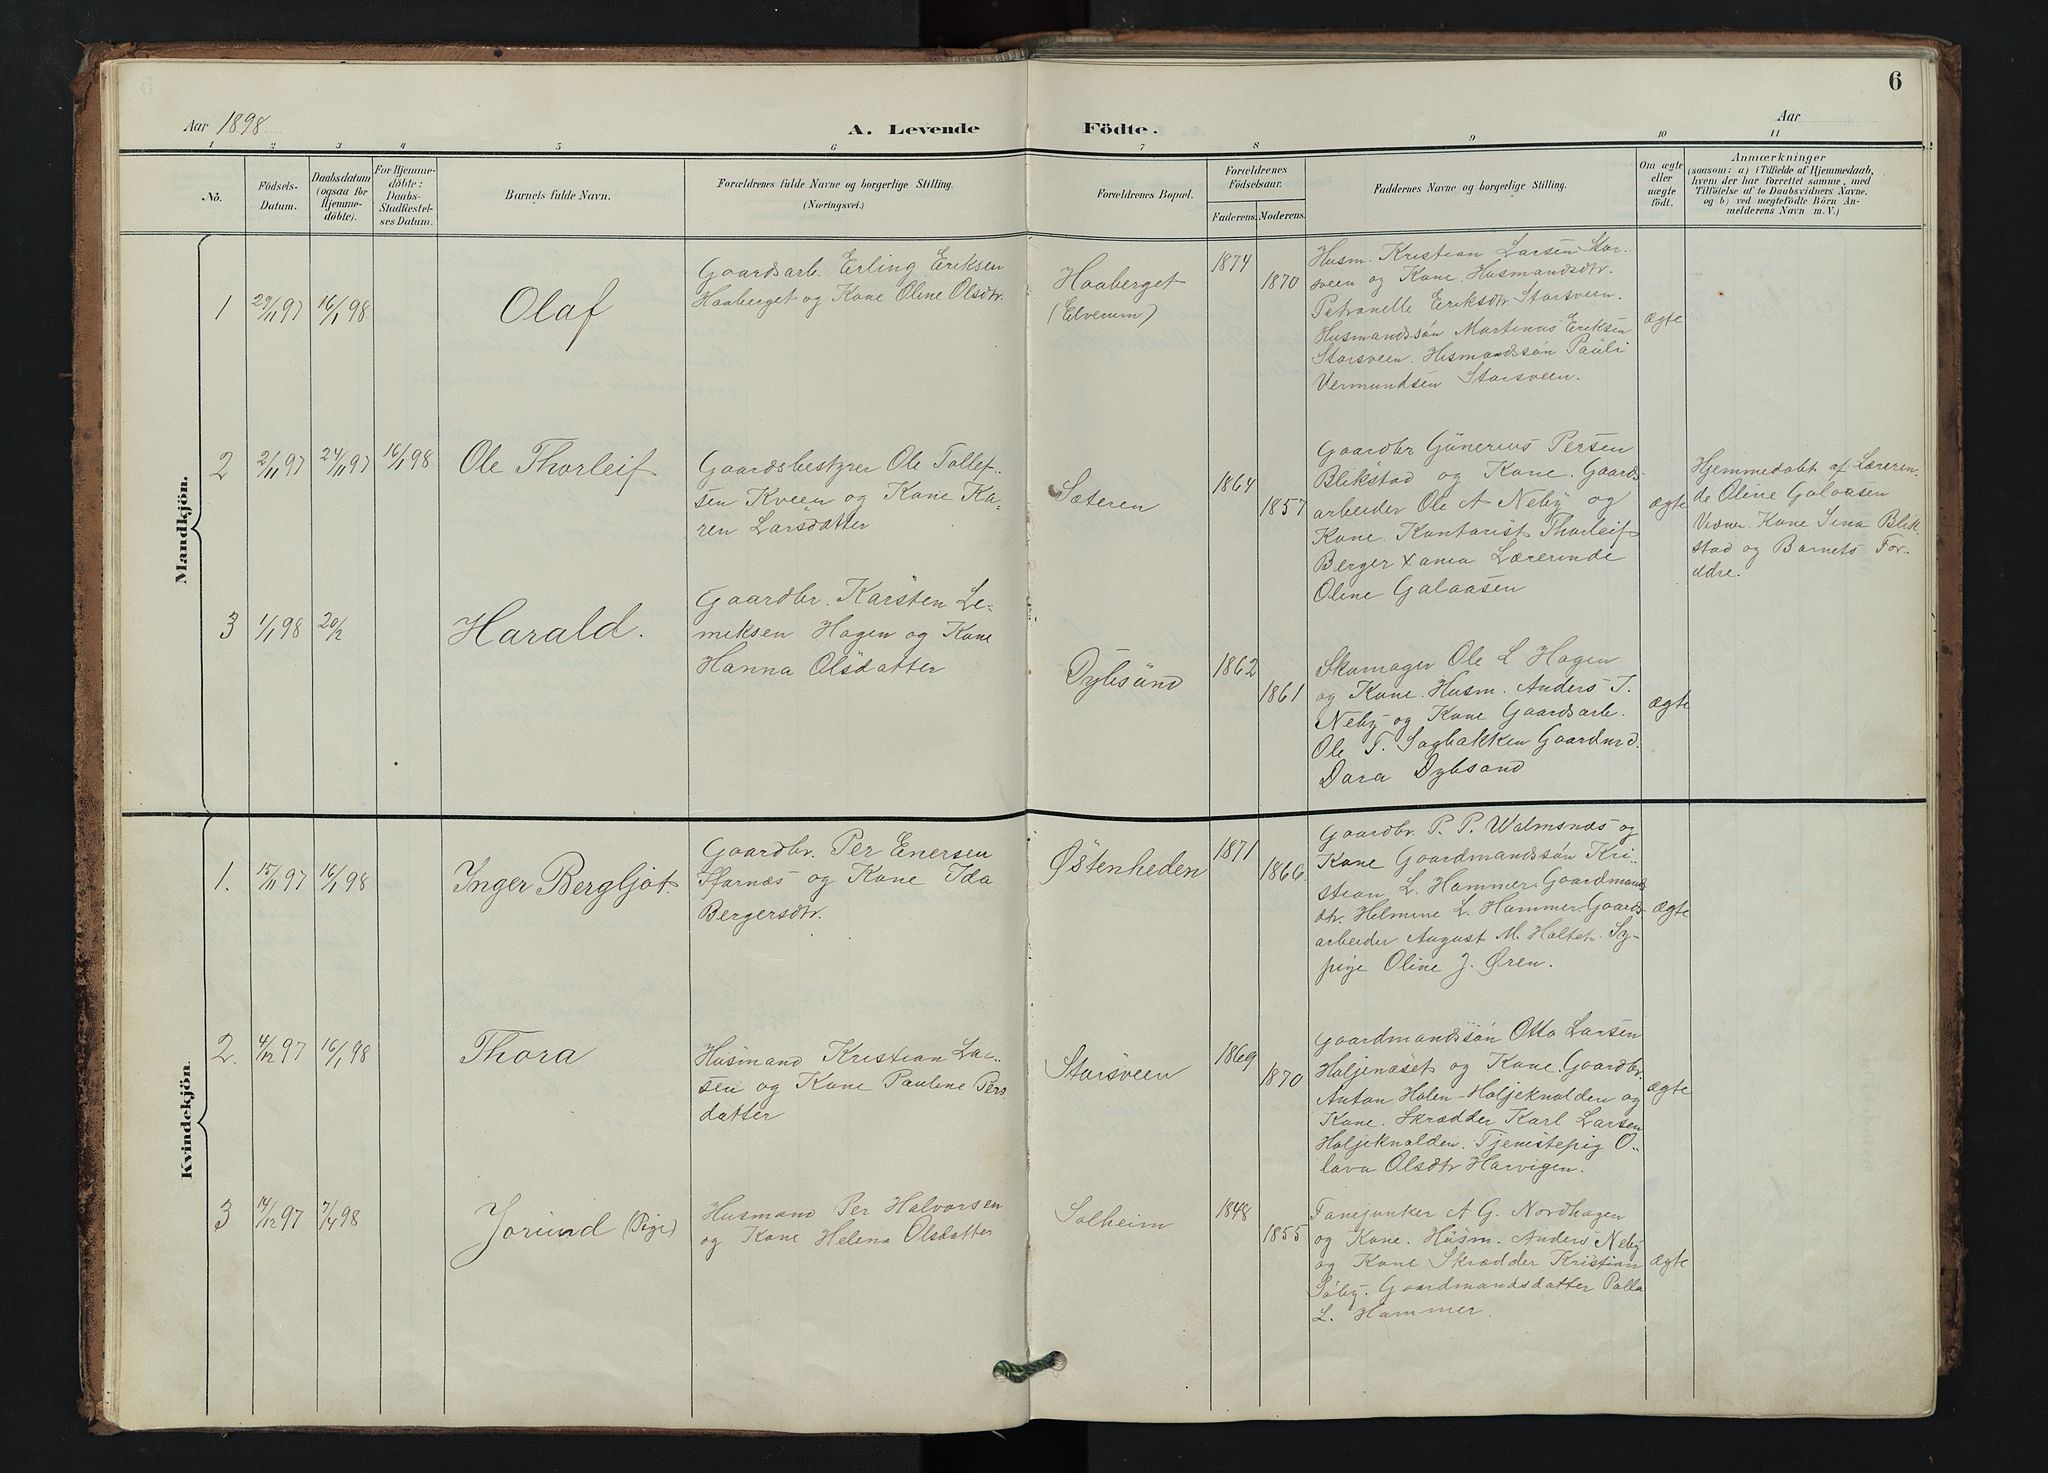 6
Aar 1898
A. Levende Födte.
Aar
1 2 3 4 5 6 7 8 9 10 11
No.
Födsels-
Datum.
Daabsdatum
(ogsaa for
Hjemme-
döbte).
For Hjemme-
döbte:
Daabs-
Stadfæstel-
ses Datum.
Barnets fulde Navn.
Forældrenes fulde Navne og borgerlige Stilling.
(Næringsvei.)
Forældrenes Bopæl.
Forældrenes
Födselsaar.
Faderens.
Moderens.
Faddernes Navne og borgerlige Stilling.
Om ægte
eller
uægte
født.
Anmærkninger
(saasom: a) i Tilfælde af Hjemmedaab,
hvem der har forrettet samme, med
Tilföielse af to Daabsvidners Navne,
og b) ved uægtefödte Börn An-
melderens Navn m. V.)
Mandkjön.
1
29/11 97
16/1 98
Olaf
Gaardsarb. Erling Eriksen
Haaberget og Kone Oline Olsdtr.
Haaberget
(Elverum)
1874
1870
Husm. Kristian Larsen Stor-
sveen og Kone. Husmandsdtr.
Petronelle Eriksdtr Storsveen.
Husmandssøn Martinus Eriksen
Storsveen. Husmandssøn Pauli
Vermundsen Storsveen.
ægte
2
2/11 97
24/11 97
16/1 98
Ole Thorleif
Gaardsbestyrer Ole Tollef-
sen Kveen og Kone Ka-
ren Larsdatter
Sæteren
1864
1857
Gaardbr Gunerius Persen
Blikstad og Kone. Gaards-
arbeider Ole A Neby og
Kone. Kontorist Thorleif
Berger Xania Lærerinde
Oline Galaasen
ægte
Hjemmedøbt af Lærerin-
de Oline Galaasen
Vidner. Kone Sina Blik
stad og Barnets For-
ældre.
3
1/1 98
20/2
Harald.
Gaardbr. Karsten Le-
meksen Hagen og Kone
Hanna Olsdatter
Dybsund
1862
1861
Skomager Ole L Hagen
og Kone. Husm. Anders T.
Neby og Kone Gaardsarb.
Ole T. Sagbakken Gaardmd.
Dora Dybsund
ægte
Kvindekjön.
1.
15/11 97
16/1 98
Inger Bergljot
Gaardbr. Per Enersen
og Kone Ida
Bergersdtr.
Østenheden
1871
1866.
Gaardbr. P. P. Walmsnæs og
Kone Gaardmandssøn Kri-
stian L. Hammer. Gaardmands
dtr. Helmine L. Hammer. Gaards
arbeider August M. Holtet. Sy-
pige Oline J. Øren.
ægte
2.
4/12 97
16/1 98
Thora
Husmand Kristian Lar-
sen og Kone Pauline Pers
datter
Storsveen
1869
1870
Gaardmandssøn Otto Larsen
Holjenæset og Kone. Gaardbr.
Anton Holen-Holjeknolden og
Kone. Skrædder Karl Larsen
Holjeknolden. Tjenestepig O-
lava Olsdtr Harvigen.
ægte
3
14/12 97
7/4 98
Jorund (Pige)
Husmand Per Halvorsen
og Kone Helena Olsdatter
Solheim
1848
1855
Fanejunker A G. Nordhagen
og Kone. Husm. Anders Neby
og Kone Skrædder Kristian
Søby. Gaardmandsdatter Palla
L. Hammer.
ægte